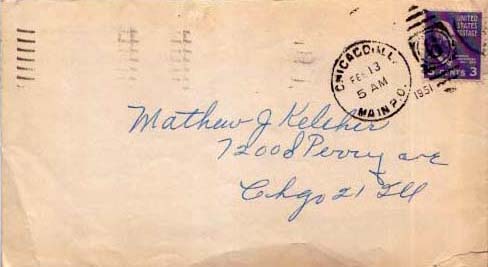 UNITED STATES
POSTAGE
CENTS 3
CHICAGO, ILL.
FEB 13
5 AM
1951
MAIN P.O.
Mathew J Keleher
12008 Perry ave
Chgo 21 Ill